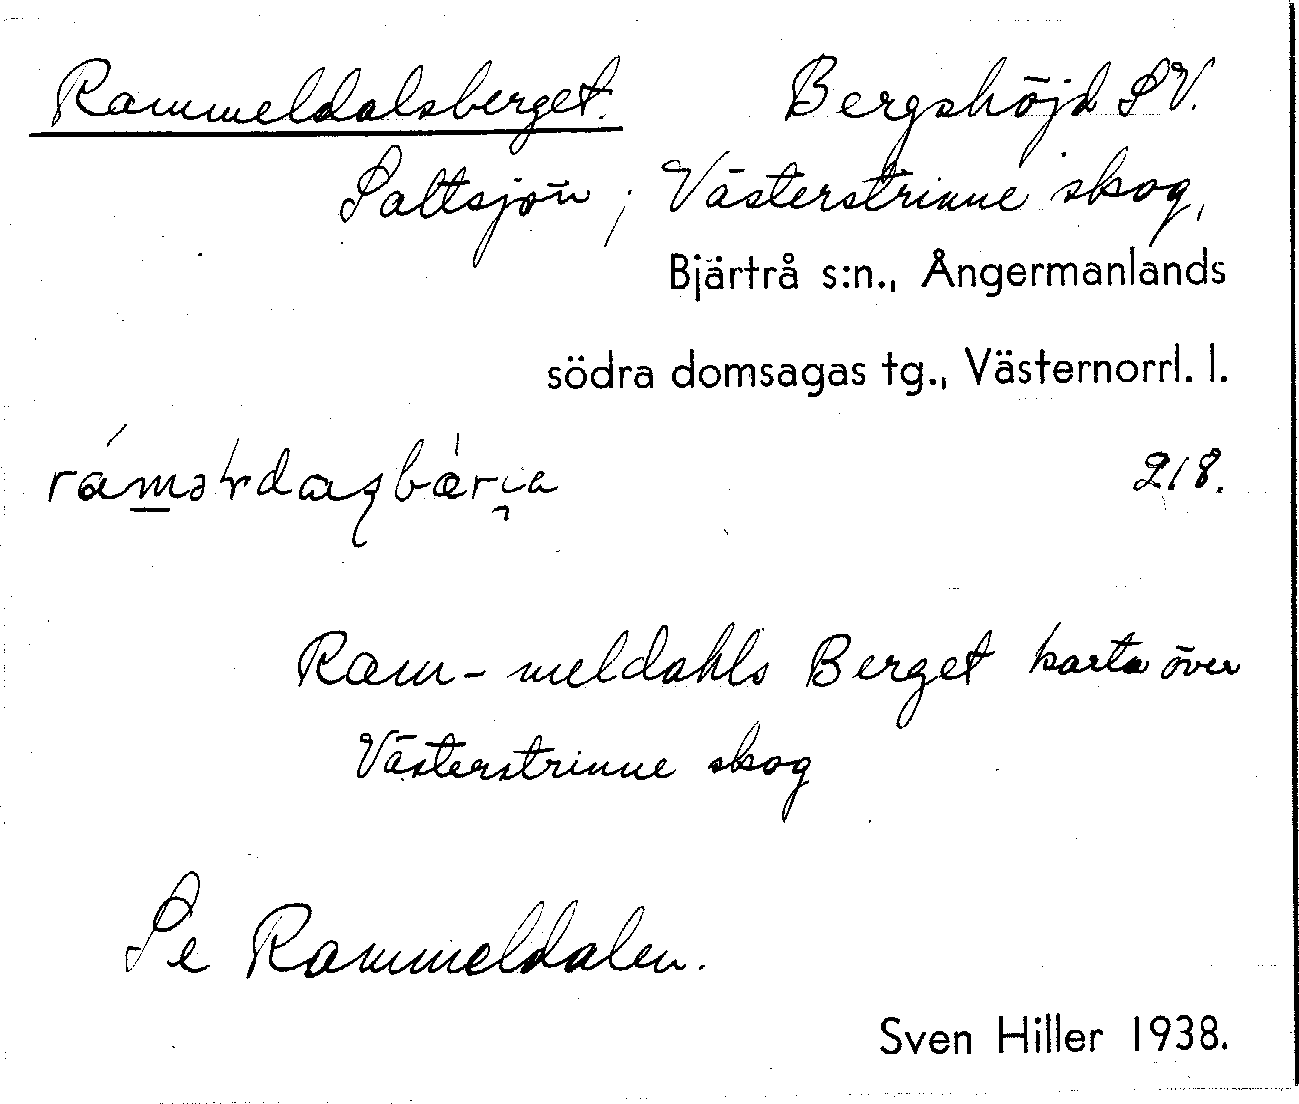 Rammeldalsberget. Bergshöjd SV.
Saltsjön; Västerstrinne skog,
Bjärtrå s:n., Ångermanlands
södra domsagas tg., Västernorrl. l.
218.
Ram-meldahls Berget karta över
Västerstrinne skog
Se Rammeldalen.
Sven Hiller 1938.